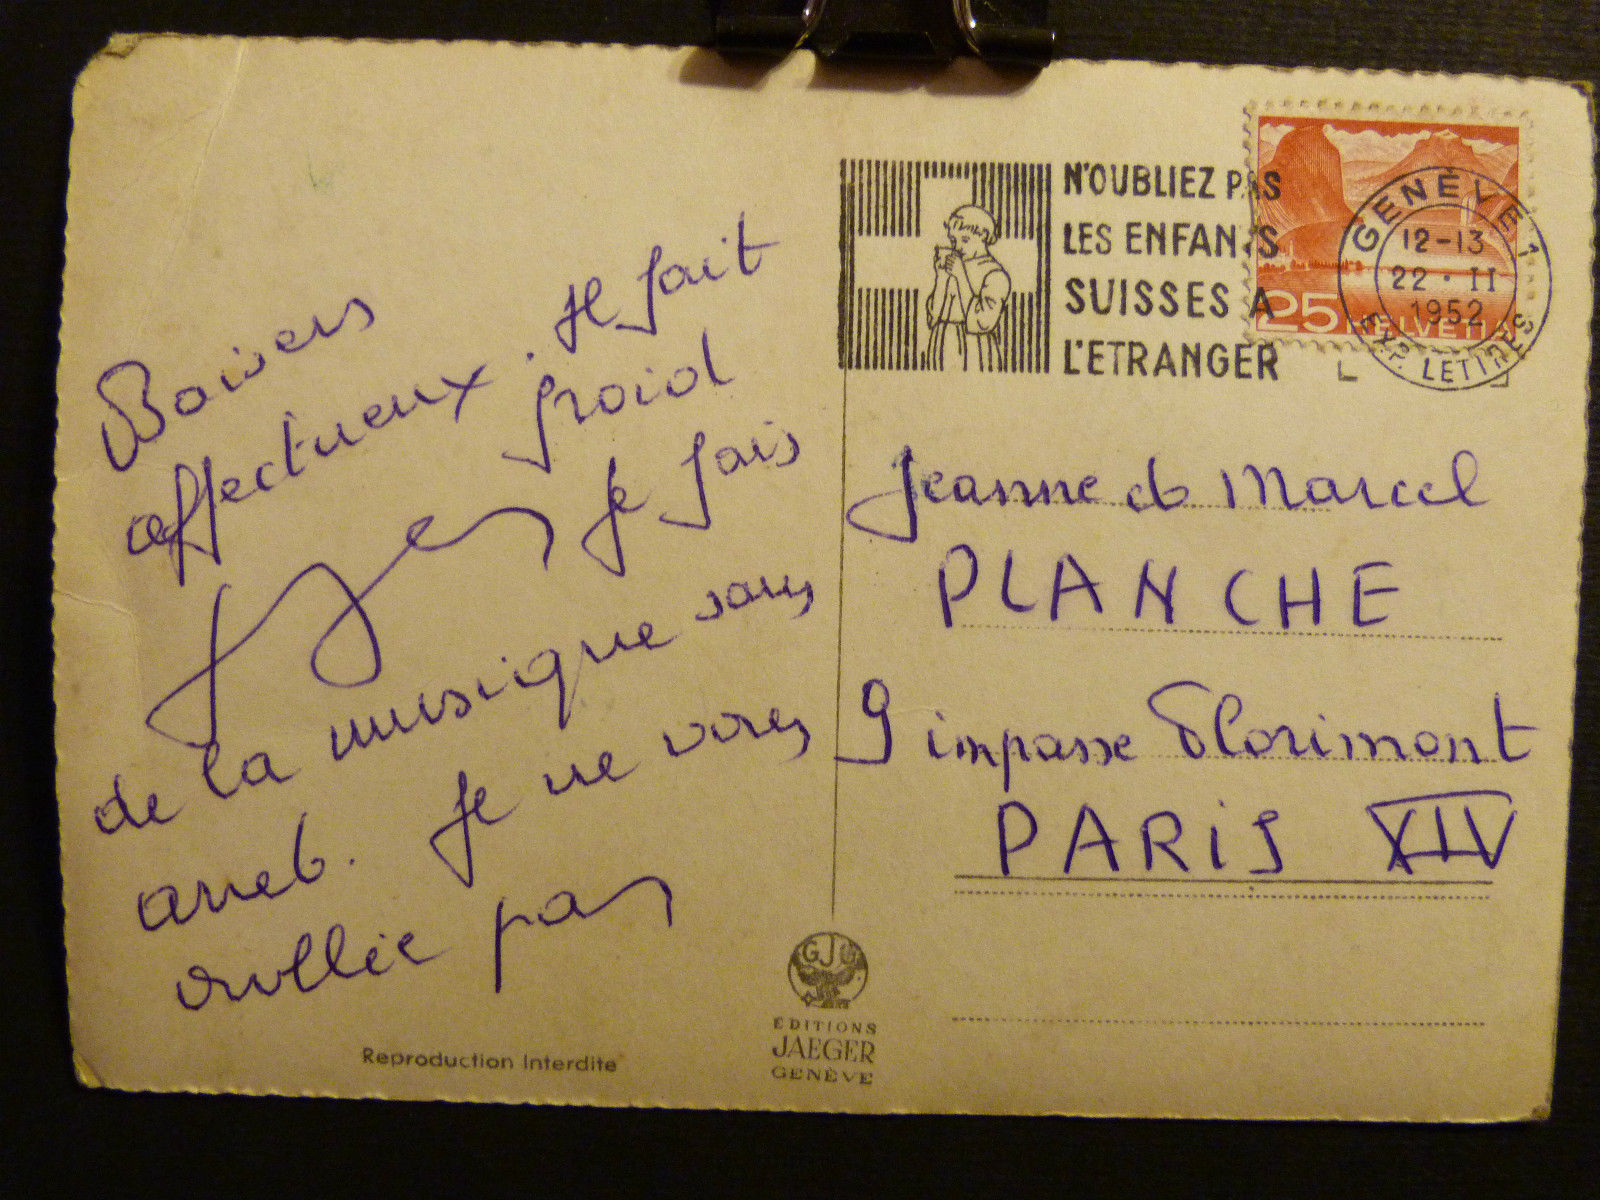 Baisers
affectueux. Il fait
froid
Je fais
de la musique sans
arret. Je ne vous
oublie pas
Reproduction Interdite
N'OUBLIEZ PAS
LES ENFANTS
SUISSES A
L'ETRANGER
25 HELVETIA
GENÈVE 1
12-13
22 · II
1952
EXP. LETTRES
Jeanne et Marcel
PLANCHE
9 impasse Florimont
PARIS XIV
GJG
ÉDITIONS
JAEGER
GENÈVE